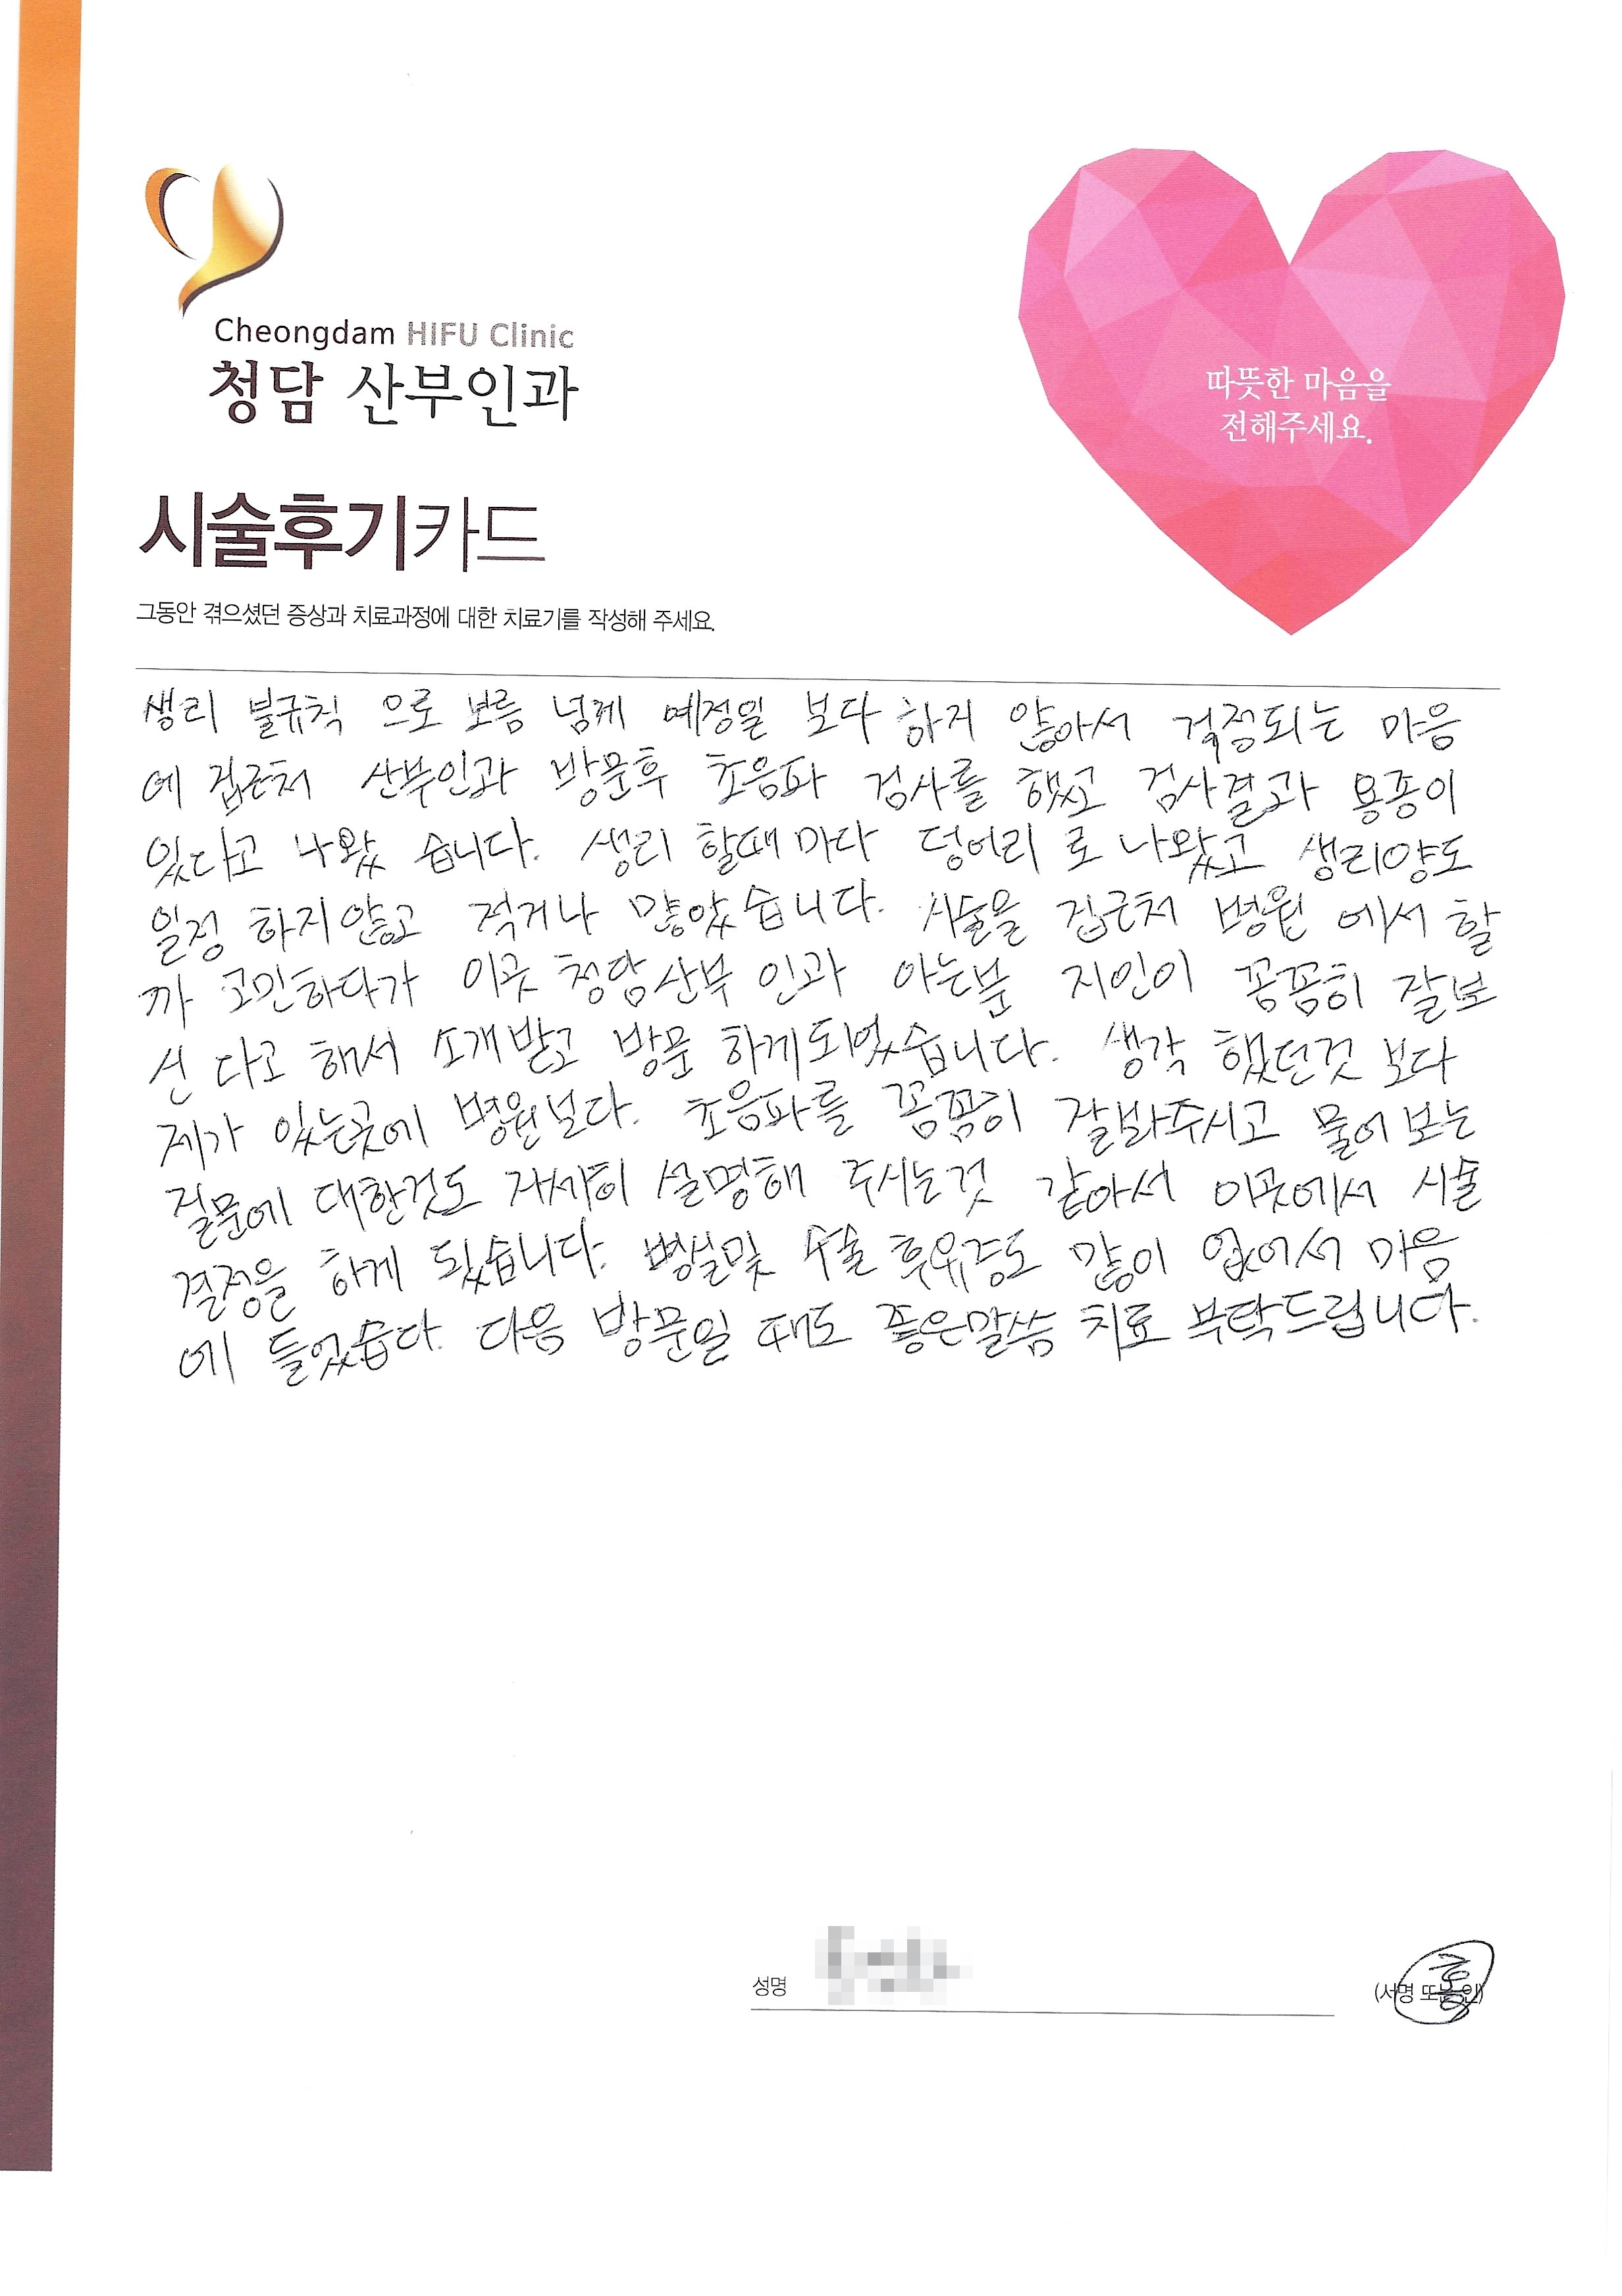 Cheongdam HIFU Clinic
청담 산부인과
따뜻한 마음을
전해주세요.
시술후기카드
그동안 겪으셨던 증상과 치료과정에 대한 치료기를 작성해 주세요.
생리 불규칙 으로 보름 넘게 예정일 보다 하지 않아서 걱정되는 마음
에 집근처 산부인과 방문후 초음파 검사를 했고 검사결과 용종이
있다고 나왔 습니다. 생리 할때 마다 덩어리 로 나왔고 생리양도
일정 하지않고 적거나 많았습니다. 시술을 집근처 병원 에서 할
까 고민하다가 이곳 청담산부 인과 아는분 지인이 꼼꼼히 잘보
신 다고 해서 소개받고 방문 하게되었습니다. 생각 했던것 보다
제가 있는곳에 병원보다. 초음파를 꼼꼼히 잘봐주시고 물어 보는
질문에 대한것도 자세히 설명해 주시는것 같아서 이곳에서 시술
결정을 하게 됬습니다. 병실및 수술 후유증도 많이 없어서 마음
에 들었습다. 다음 방문일 때도 좋은말씀 치료 부탁드립니다.
성명
(서명 또는 인)
홍